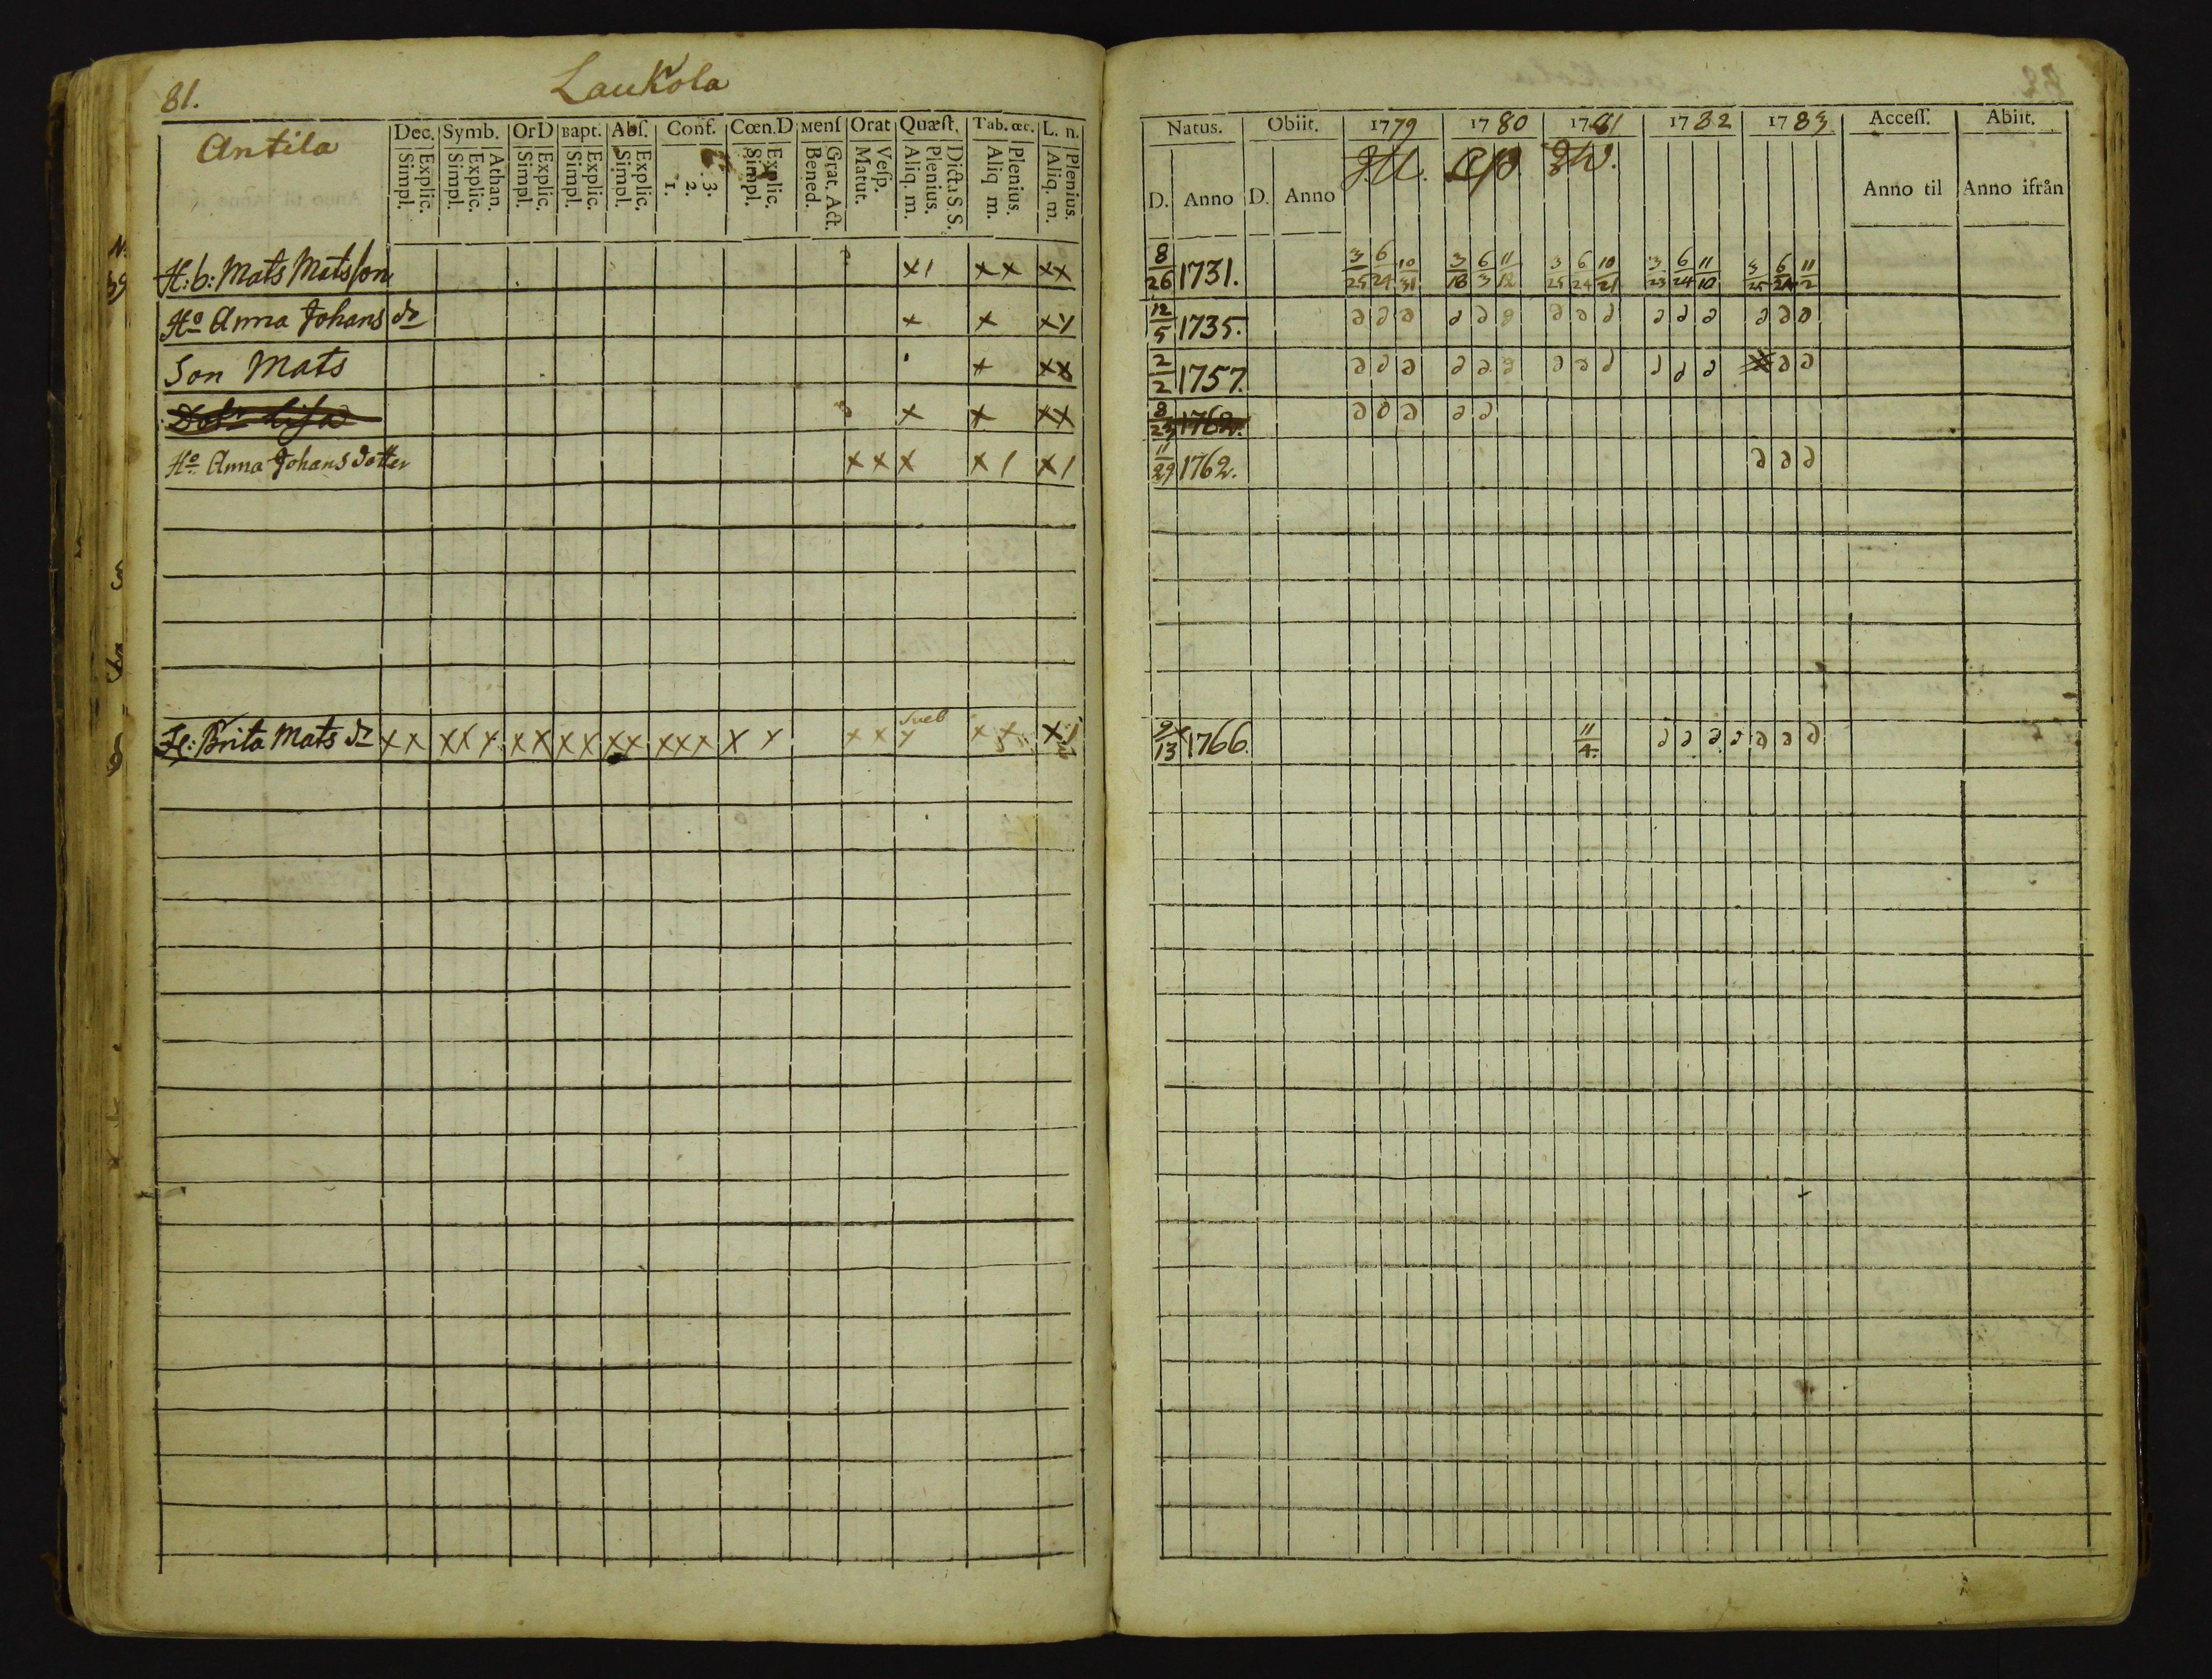 81. Laukola
Antila Dec. Symb. OrD Bapt. Abſ. Conf. Cœn.D Menſ Orat Quæſt. Tab. œc. L. n.
Simpl. Explic. Simpl. Explic. Athan. Simpl. Explic. Simpl. Explic. Simpl. Explic. 1. 2. 3. Simpl. Explic. Bened. Grat. Act. Matut. Veſp. Aliq. m. Plenius. Dict. S. S. Aliq m. Plenius. Aliq. m. Plenius.
H:b: Mats Matsson x1 xx xx
Ho Anna Johans dr x x xx
Son Mats x xx
Dotr Lisa x x xx
Ho Anna Johans dotter xxx x1 x1
H: Brita Mats dr xx xxx xx xx xx xxx x x xx x xx x1
Natus. Obiit. 1779 1780 1781 1782 1783 Acceſſ. Abiit.
D. Anno D. Anno Anno til Anno ifrån
8/26 1731. 3/25 6/24 10/31 3/18 6/3 11/12 3/25 6/24 10/21 3/23 6/24 11/10 3/25 6/24 11/2
12/5 1735. ∂∂∂ ∂∂∂ ∂∂∂ ∂∂∂ ∂∂∂
2/2 1757. ∂∂∂ ∂∂∂ ∂∂∂ ∂∂∂ ∂∂
8/23 1762. ∂∂∂ ∂∂
11/29 1762. ∂∂∂
9/13 1766. 11/4. ∂∂∂ ∂∂∂∂